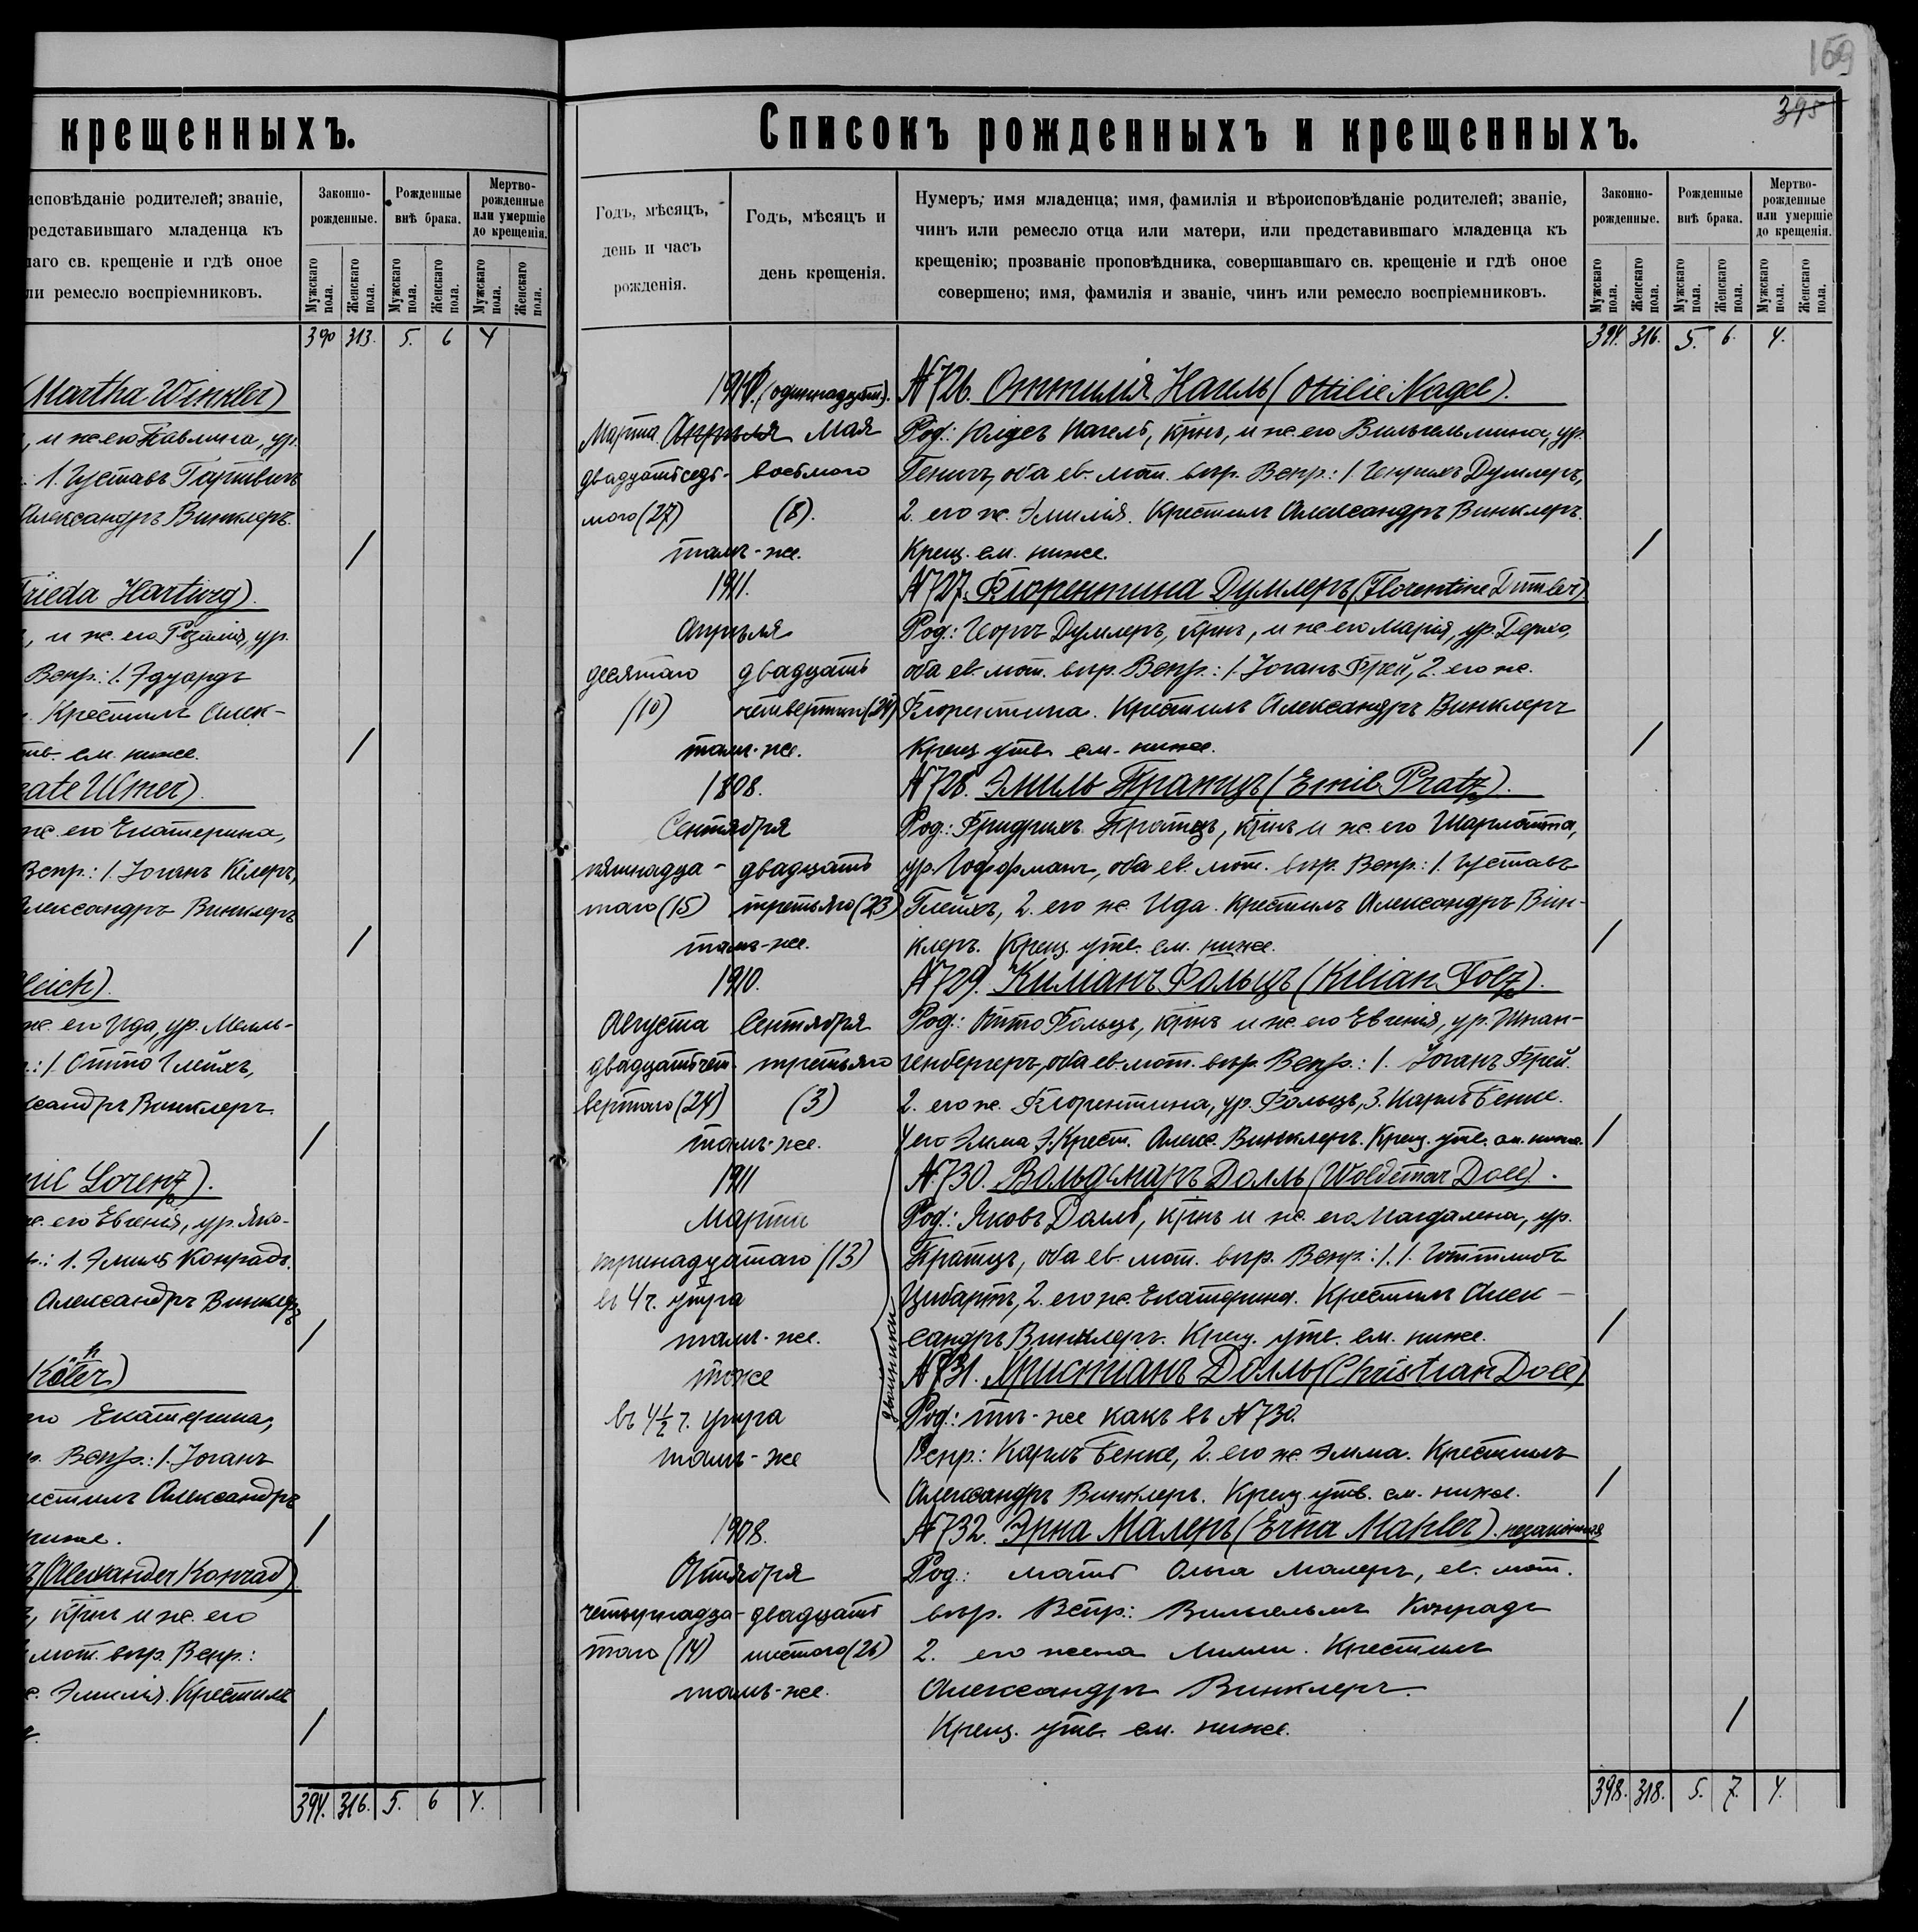 крещенныхъ.
исповѣданіе родителей; званіе,
редставившаго младенца къ
шаго св. крещеніе и гдѣ оное
ли ремесло воспріемниковъ.
Законно-
рожденные.
Рожденные
внѣ брака.
Мертво-
рожденные
или умершіе
до крещенія.
Мужскаго пола.
Женскаго пола.
Мужскаго пола.
Женскаго пола.
Мужскаго пола.
Женскаго пола.
390 313. 5. 6 4
(Martha Winkler)
, и же его Павлина, ур.
1. Густавъ Гартвигъ
Александръ Винклеръ.
/
rieda Hartwig).
, и ж. его Розалія, ур.
Вспр.: 1. Эдуардъ
Крестилъ Алек-
утв. см. ниже. /
ate Ulmer).
ж. его Екатерина,
Вспр.: 1. Іоганъ Кілеръ,
Александръ Винклеръ
/
leich).
ж. его Ида, ур. Мель-
: 1. Отто Глейхъ,
ксандръ Винклеръ.
/
mil Lorenz).
ж. его Евгенія, ур. Яко-
р.: 1. Эмиль Конрадъ.
Александръ Винклеръ
/
Köhler)
го Екатерина,
р. Вспр.: 1. Іоганъ
рестилъ Александръ
ниже. /
ъ (Alexander Konrad)
, крнъ и ж. его
мот. вѣр. Вспр.:
ж. Эмилія. Крестилъ
/
394. 316. 5. 6 4.
169
395
Списокъ рожденныхъ и крещенныхъ.
Годъ, мѣсяцъ,
день и часъ
рожденія.
Годъ, мѣсяцъ и
день крещенія.
Нумеръ; имя младенца; имя, фамилія и вѣроисповѣданіе родителей; званіе,
чинъ или ремесло отца или матери, или представившаго младенца къ
крещенію; прозваніе проповѣдника, совершавшаго св. крещеніе и гдѣ оное
совершено; имя, фамилія и званіе, чинъ или ремесло воспріемниковъ.
Законно-
рожденные.
Рожденные
внѣ брака.
Мертво-
рожденные
или умершіе
до крещенія.
Мужскаго пола.
Женскаго пола.
Мужскаго пола.
Женскаго пола.
Мужскаго пола.
Женскаго пола.
394. 316. 5. 6. 4.
(одиннадцат.). №726. Оттилія Нагель (Ottilie Nagel).
Марта Апрѣля Мая Род.: Нагель, крнъ, и ж. его Вильгельмина, ур.
двадцать седь- восьмого оба ев. мот. вѣр. Вспр.: 1. Генрихъ Думлеръ,
мого (27) (8). 2. его ж. Эмилія. Крестилъ Александръ Винклеръ.
тамъ-же. Крещ. см. ниже. /
1911. №727. Флорентина Думлеръ (Florentine Dumler)
Апрѣля Род.: Георгъ Думлеръ, крнъ, и ж. его Марія, ур.
десятаго двадцать оба ев. мот. вѣр. Вспр.: 1. Іоганъ Фрей, 2. его ж.
(10) четвертаго (24) Флорентина. Крестилъ Александръ Винклеръ
тамъ-же. Крещ. утв. см. ниже. /
1908. №728. Эмиль Пратцъ (Emil Pratz).
Сентября Род.: Фридрихъ Пратцъ, крнъ и ж. его Шарлотта,
пятнадца- двадцать ур. Гофманъ, оба ев. мот. вѣр. Вспр.: 1. Густавъ
таго (15) третьяго (23) Глейхъ, 2. его ж. Ида. Крестилъ Александръ Вин-
тамъ-же. клеръ. Крещ. утв. см. ниже. /
1910. №729. Киліанъ Фольцъ (Kilian Folz).
Августа Сентября Род.: Отто Фольцъ, крнъ и ж. его Евгенія, ур. Шпан-
двадцать чет- третьяго генбергеръ, оба ев. мот. вѣр. Вспр.: 1. Іоганъ Фрей.
вертаго (24) (3) 2. его ж. Флорентина, ур. Фольцъ, 3. Карлъ Бенке.
тамъ-же. 4 его Эмма Крест. Алекс. Винклеръ. Крещ. утв. см. ниже. /
1911 №730. Вольдемаръ Долль (Woldemar Doll).
Марта Род.: Яковъ Долль, крнъ и ж. его Магдалена, ур.
тринадцатаго (13) Пратцъ, оба ев. мот. вѣр. Вспр.: 1. 1. Готтлибъ
въ 4 ч. утра Цибартъ, 2. его ж. Екатерина. Крестилъ Алек-
тамъ-же. сандръ Винклеръ. Крещ. утв. см. ниже. /
двойники
тоже №731. Христіанъ Долль (Christian Doll)
въ 4½ ч. утра Род.: тѣ-же какъ въ №730.
тамъ-же Вспр.: Карлъ Бенке, 2. его ж. Эмма. Крестилъ
Александръ Винклеръ. Крещ. утв. см. ниже. /
1908. №732. Эрна Малеръ (Erna Mahler). незаконная
Октября Род.: мать Ольга Малеръ, ев. мот.
четырнадца- двадцать вѣр. Вспр.: Вильгельмъ Конрадъ
таго (14) шестого (26) 2. его жена Милли. Крестилъ
тамъ-же. Александръ Винклеръ.
Крещ. утв. см. ниже. /
398. 318. 5. 7. 4.